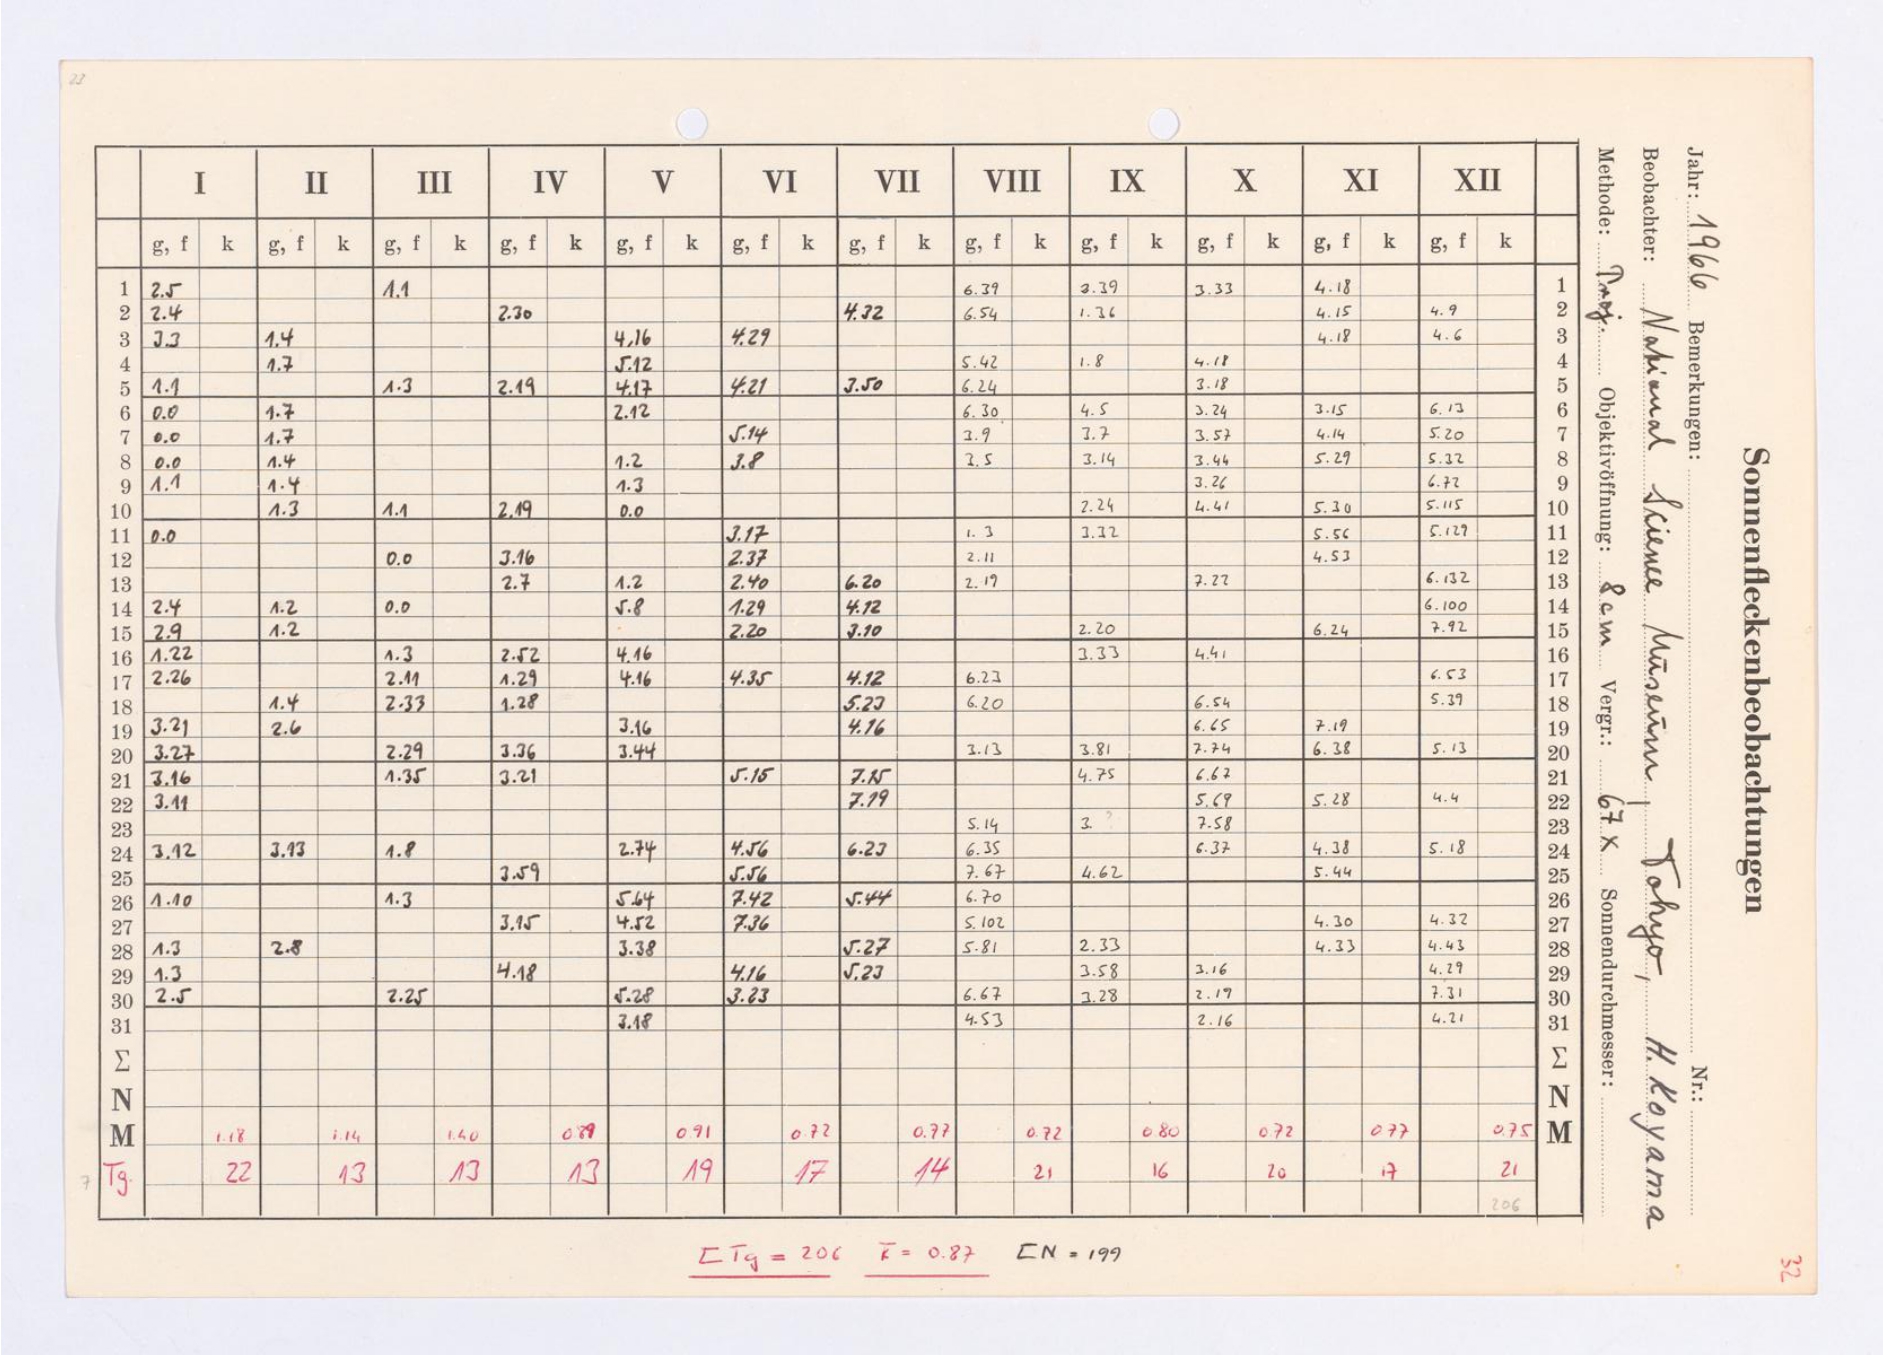 23
Sonnenfleckenbeobachtungen
Jahr: 1966 Bemerkungen: Nr.:
Beobachter: National Science Museum, Tokyo, H. Koyama
Methode: Proj. Objektivöffnung: 8 cm Vergr.: 67 x Sonnendurchmesser:
I II III IV V VI VII VIII IX X XI XII
g, f k g, f k g, f k g, f k g, f k g, f k g, f k g, f k g, f k g, f k g, f k g, f k
1 2.5 1.1 6.39 3.39 3.33 4.18 1
2 2.4 2.30 4.32 6.54 1.36 4.15 4.9 2
3 3.3 1.4 4.16 4.29 4.18 4.6 3
4 1.7 5.12 5.42 1.8 4.18 4
5 1.1 1.3 2.19 4.17 4.21 3.50 6.24 3.18 5
6 0.0 1.7 2.12 6.30 4.5 3.24 3.15 6.13 6
7 0.0 1.7 5.14 3.9 3.7 3.57 4.14 5.20 7
8 0.0 1.4 1.2 3.8 3.5 3.14 3.44 5.29 5.32 8
9 1.1 1.4 1.3 3.26 6.72 9
10 1.3 1.1 2.19 0.0 2.24 4.41 5.30 5.115 10
11 0.0 3.17 1.3 3.32 5.56 5.129 11
12 0.0 3.16 2.37 2.11 4.53 12
13 2.7 1.2 2.40 6.20 2.19 7.22 6.132 13
14 2.4 1.2 0.0 5.8 1.29 4.12 6.100 14
15 2.9 1.2 2.20 3.10 2.20 6.24 7.92 15
16 1.22 1.3 2.52 4.16 3.33 4.41 16
17 2.26 2.11 1.29 4.16 4.35 4.12 6.23 6.53 17
18 1.4 2.33 1.28 5.23 6.20 6.54 5.39 18
19 3.21 2.6 3.16 4.16 6.65 7.19 19
20 3.27 2.29 3.36 3.44 3.13 3.81 7.74 6.38 5.13 20
21 3.16 1.35 3.21 5.15 7.15 4.75 6.67 21
22 3.11 7.19 5.69 5.28 4.4 22
23 5.14 3. ? 7.58 23
24 3.12 3.13 1.8 2.74 4.56 6.23 6.35 6.37 4.38 5.18 24
25 3.59 5.56 7.67 4.62 5.44 25
26 1.10 1.3 5.64 7.42 5.44 6.70 26
27 3.15 4.52 7.36 5.102 4.30 4.32 27
28 1.3 2.8 3.38 5.27 5.81 2.33 4.33 4.43 28
29 1.3 4.18 4.16 5.23 3.58 3.16 4.29 29
30 2.5 2.25 5.28 3.23 6.67 3.28 2.19 7.31 30
31 3.18 4.53 2.16 4.21 31
Σ Σ
N N
M 1.18 1.14 1.40 0.91 0.72 0.77 0.72 0.80 0.72 0.77 0.75 M
7 Tg. 22 13 13 13 19 17 14 21 16 20 17 21
206
ΣTg = 206 k̄ = 0.87 ΣN = 199
32